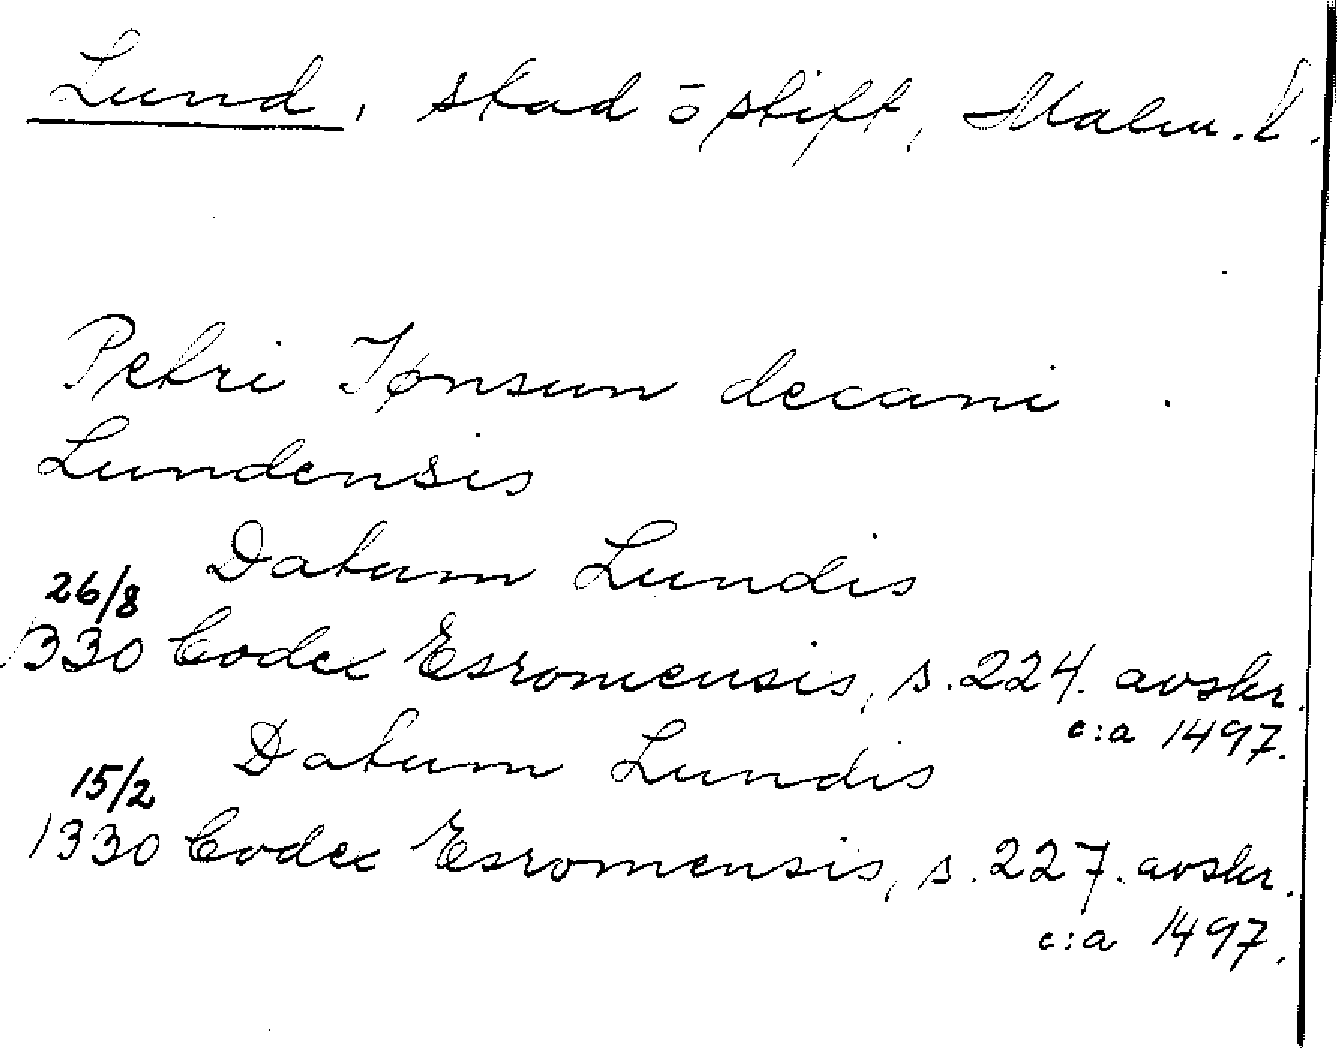 Lund, stad ō stift, Malm. l.
Petri Jønsun decani
Lundensis
Datum Lundis
26/8
1330 Codex Esromensis, s. 224. avskr.
c:a 1497.
Datum Lundis
15/2
1330 Codex Esromensis, s. 227. avskr.
c:a 1497.